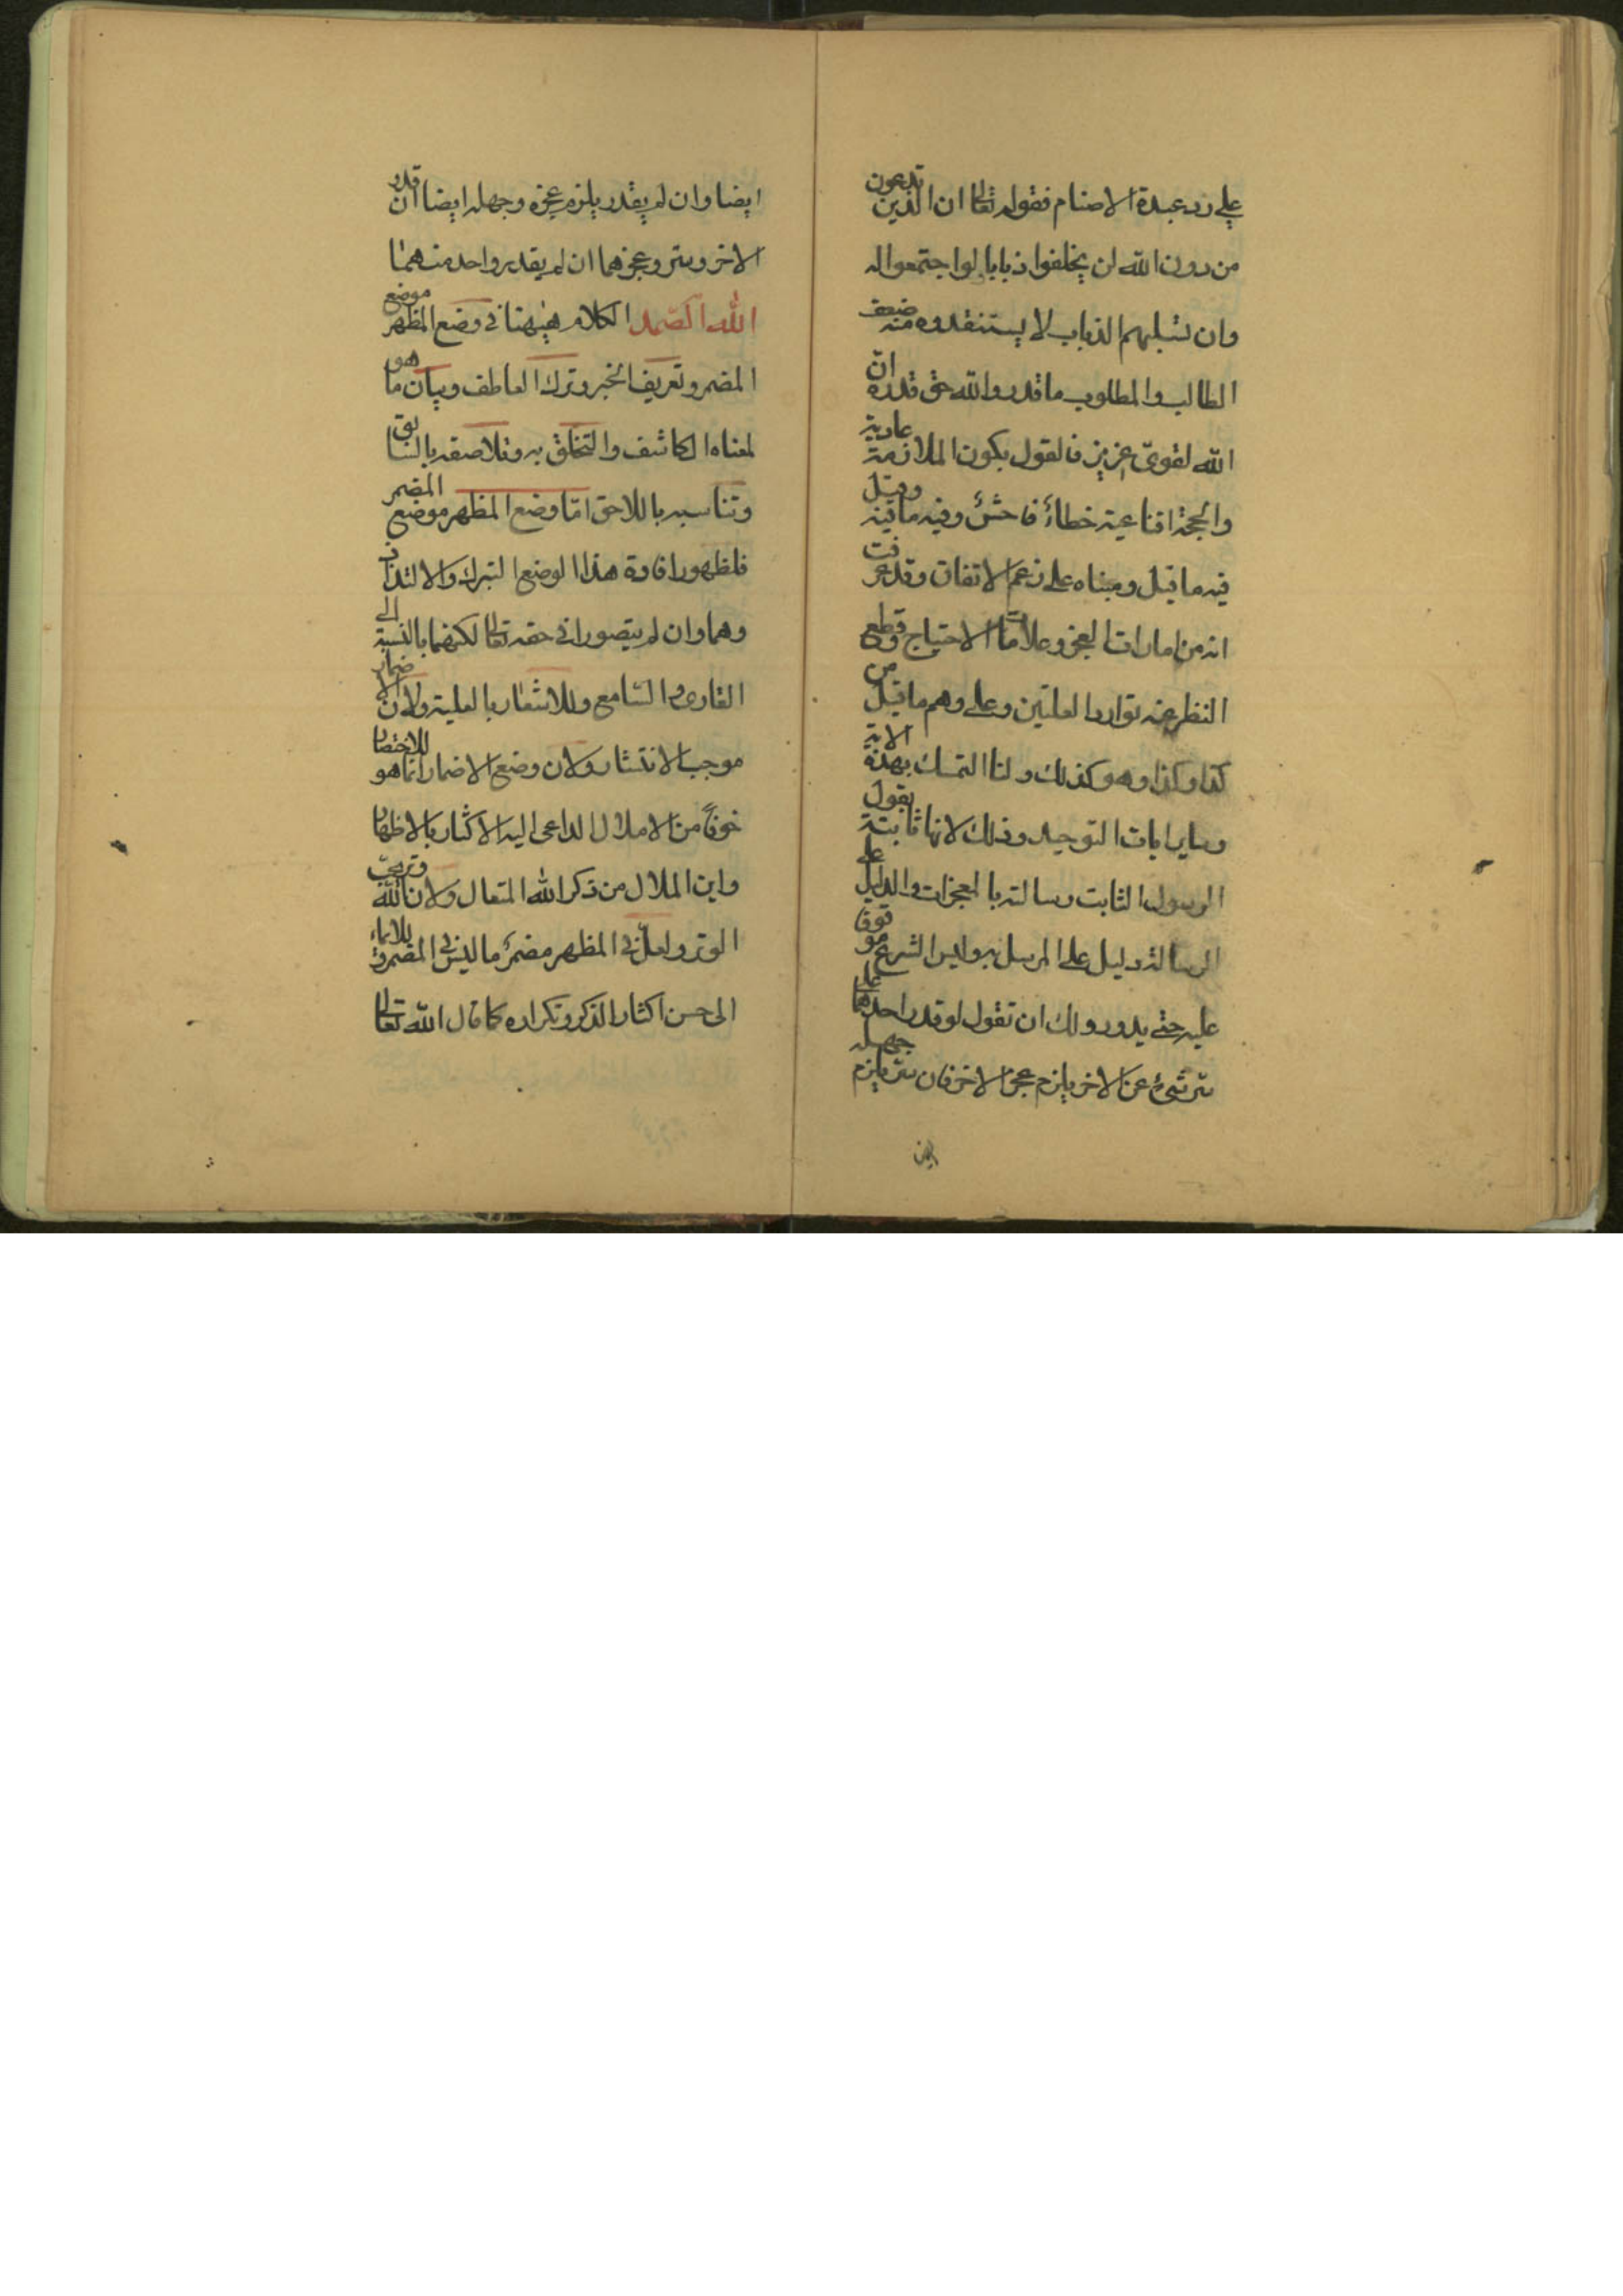 على رد عبدة الاصنام فقوله تعالى ان الذين تدعون
من دون الله لن يخلقوا ذبابا لوا جتمعوا له
وان يسلبهم الذباب لا يستنقذوه منه ضعف
الطالب والمطلوب ما قدروا الله حق قدره انّ
الله لقوىّ عزيز فالقول بكون الملازمة عادية
والحجة اقناعية خطاءٌ فاحشٌ وفيه ما فيه وقيل
فيه ما قيل ومبناه على زعم الاتفاق وقد عرفت
انه من امارات العجز وعلامات الاحتياج وقطع
النظر عنه توارد العلتين وعلى وهم ما قيل من
كذا وكذا وهو كذلك ولنا التمسك بهذه الاية
وساير ايات التوحيد وذلك لانها ثابتة بقول
الرسول الثابت رسالته بالمعجزات والدليل على
الرسالة دليل على المرسل به وليس الشرع موقوفا
عليه حتى يدور ولك ان تقول لو قدر احدهما على
ستر شىءٍ عن الاخر يلزم عجز الاخر فان ستر يلزم جهله
ايضا وان لم يقدر يلزم عجزه وجهله ايضا ان قدر
الاخر وستر وعجزهما ان لم يقدر واحد منهما
الله الصّمد الكلام هيٰهنا فى وضع المظهر موضع
المضمر وتعريف الخبر وترك العاطف وبيان ما هو
لمعناه الكاشف والتخلق به وتلاصقه بالسابق
وتناسبه باللاحق امّا وضع المظهر موضع المضمر
فلظهور افادة هذا الوضع التبرك والالتذاذ
وهما وان لم يتصورا فى حقه تعالى لكنهما بالنسبة الى
القارى والسّامع وللاشعار بالعلية ولان الاضمار
موجب الانتشار ولان وضع الاضمار انما هو للاختصار
خوفاً من الاملال الداعى اليه الاكثار بالاظهار
واين الملال من ذكر الله المتعال ولان الله وتر يحبّ
الوتر ولعلّ فى المظهر مضمرٌ ما ليس فى المضمر وللايماء
الى حسن اكثار الذكر وتكراره كما قال الله تعالى